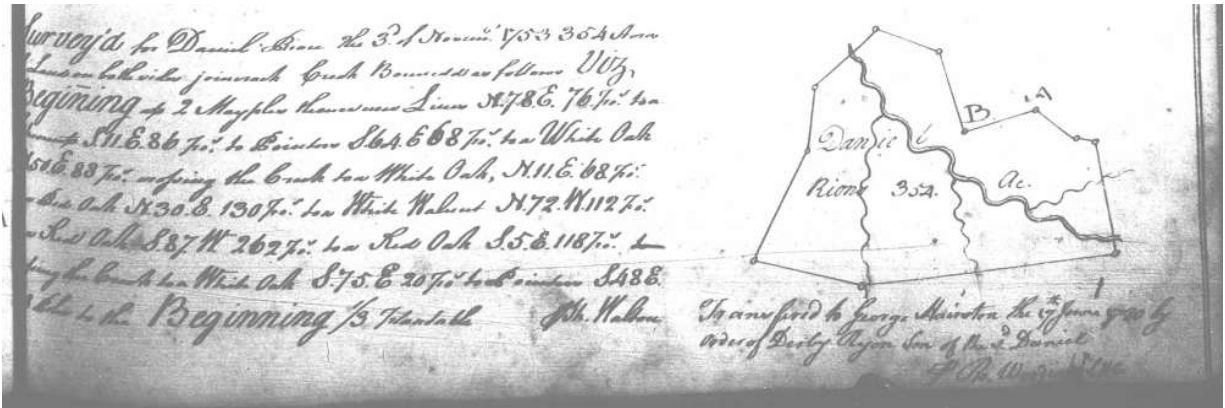 Survey'd for Daniel Rion the 3d of Novemr. 1753 354 Acres
of Land on both sides joinerack Creek Bounded as follows Viz,
Begining at 2 Mayples thence new Lines N.78.E. 76 po. to a
S.11.E.86 po. to Pointers S.64.E 68 po. to a White Oak
S50E.88 po. crossing the Creek to a White Oak, N.11.E. 68 po.
Red Oak N.30.E. 130 po. to a White Walnut N.72.W.112 po.
a Red Oak S.87.W 262 po. to a Red Oak S.5.E.118 po.
the Creek to a White Oak S.75.E 20 po to Pointers S48E.
to the Beginning 1/3 Plantable
Jh. Walton
Daniel
Rion 354 Ac.
B.
A
Transfered to George Hairston the 17th June 1780 by
order of Derby Ryon Son of the sd. Daniel